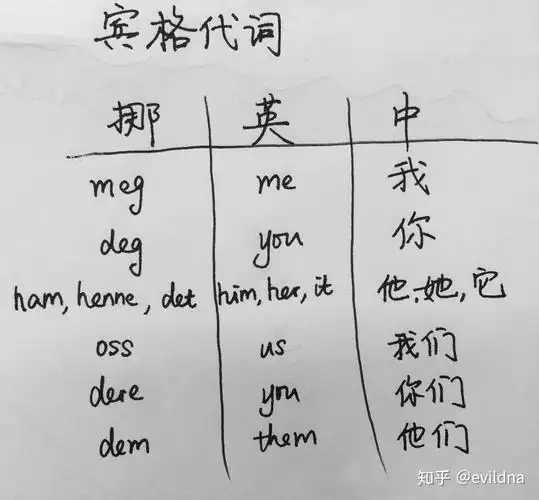 宾格代词
挪 英 中
meg me 我
deg you 你
ham, henne, det him, her, it 他,她,它
oss us 我们
dere you 你们
dem them 他们
知乎 @evildna